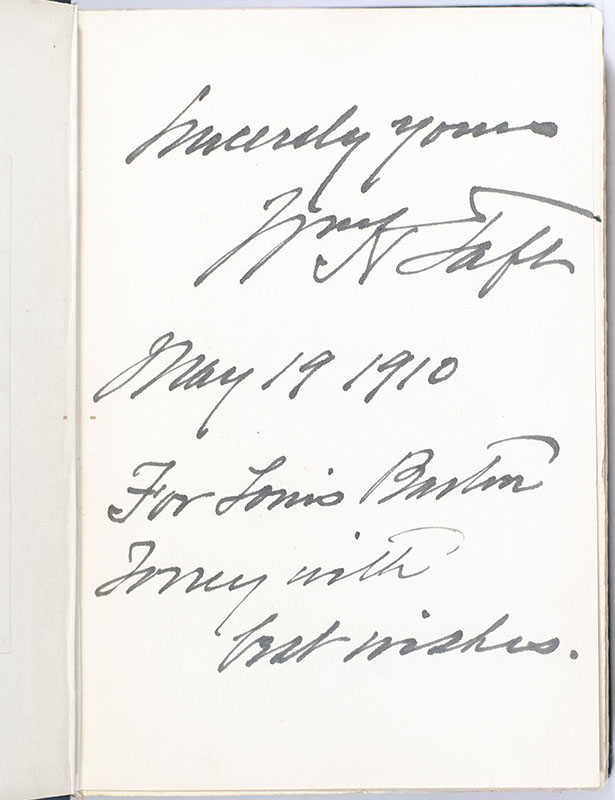 Sincerely yours
Wm H Taft
May 19 1910
For Louis Barton
Torrey with
best wishes.